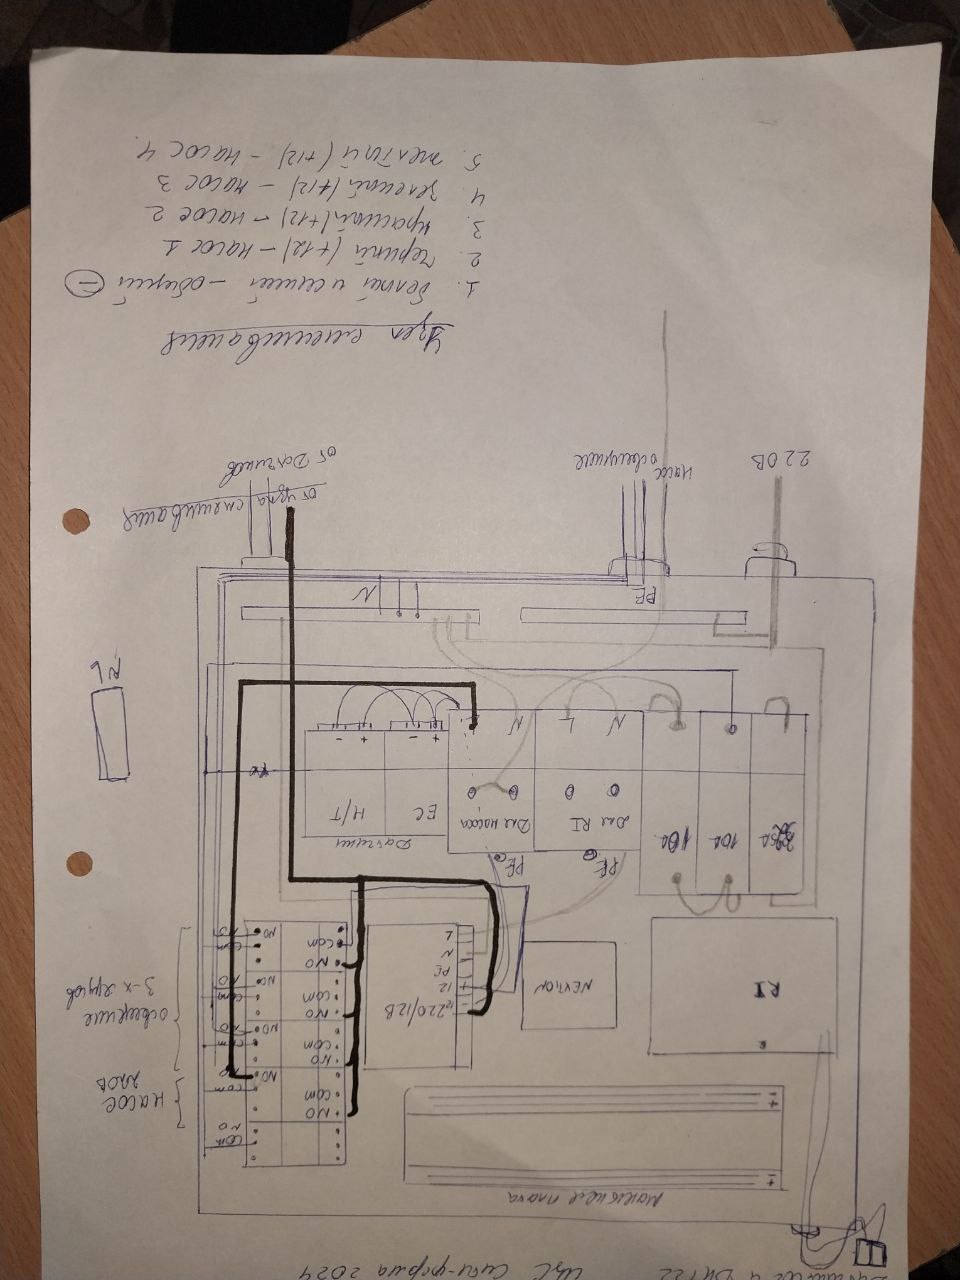 и DHT22 ЩС Сити-ферма 2024
Макетная плата
±
±
RI
NEXTION
220/12В
12
12
PE
N
L
NO
com
NO
com
NO
com
NO
com
com
NO
com
NO
NO
com
NO
NO
com
NO
NO
com
NO
NO
насос
220В
освещение
3-х ярусов
10А
10А
PE
PE
Для RI
Для насоса
Датчики
EC
H/T
N
L
N
+ -
+ -
N L
PE
N
220В
насос
освещение
от узла смешивания
от Датчиков
Узел смешивания
1. белый и синий - общий ⊖
2. черный (+12) - насос 1
3. красный (+12) - насос 2
4. зеленый (+12) - насос 3
5. желтый (+12) - насос 4.